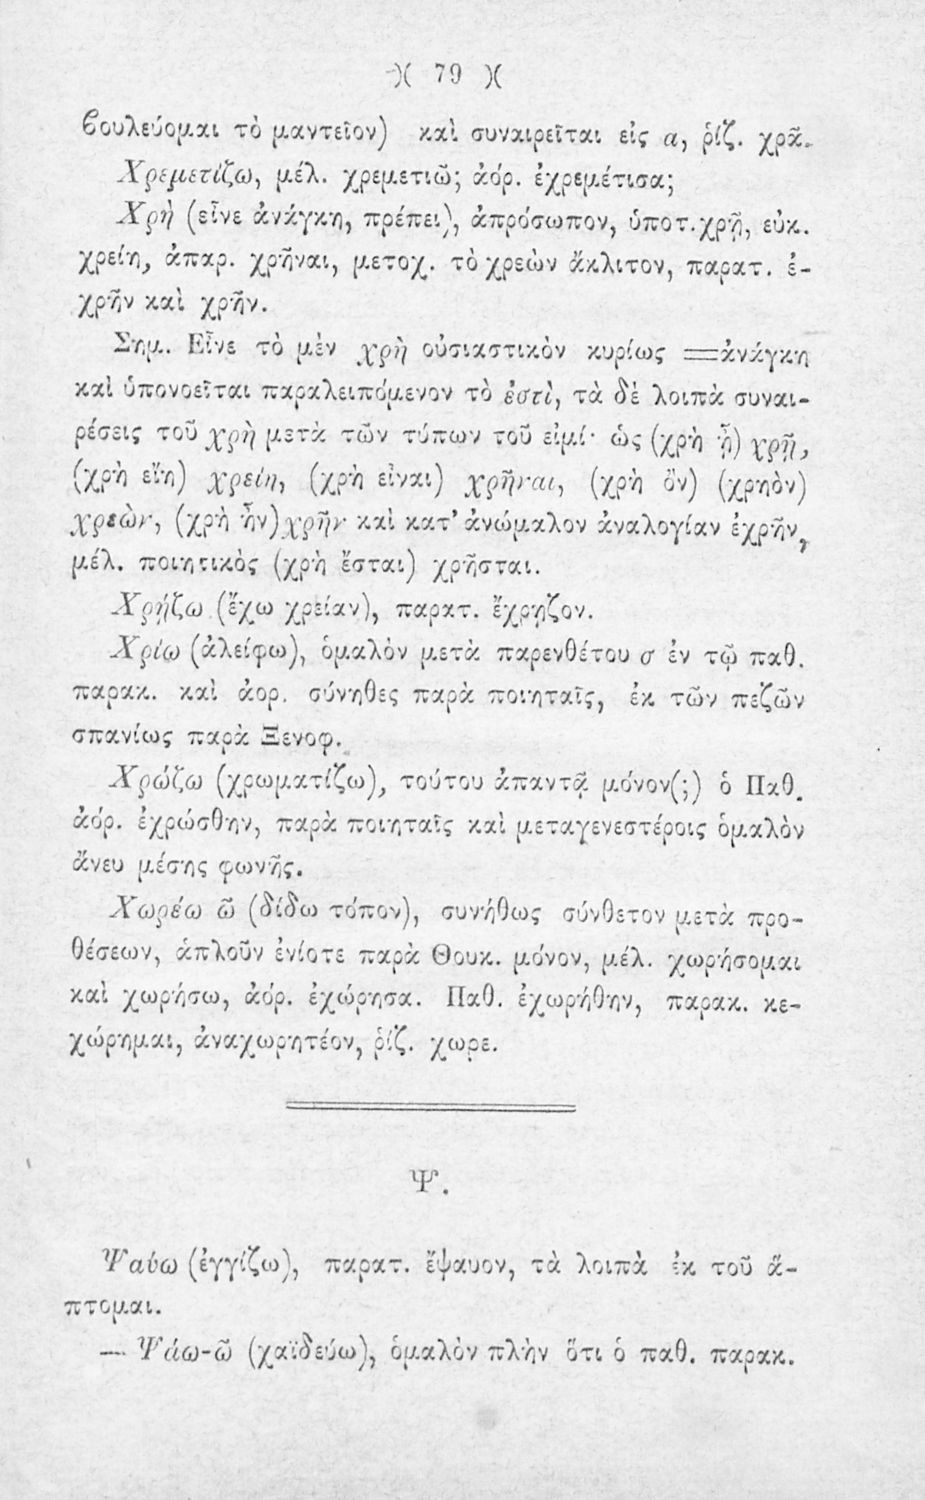 )( 79 )(
βουλεύομαι τὸ μαντεῖον) καὶ συναιρεῖται εἰς α, ῥίζ. χρᾶ.
Χρεμετίζω, μέλ. χρεμετιῶ; ἀόρ. ἐχρεμέτισα;
Χρὴ (εἶνε ἀνάγκη, πρέπει), ἀπρόσωπον, ὑποτ. χρῇ, εὐκ.
χρείη, ἀπαρ. χρῆναι, μετοχ. τὸ χρεὼν ἄκλιτον, παρατ. ἐ-
χρῆν καὶ χρῆν.
Σημ. Εἶνε τὸ μὲν χρὴ οὐσιαστικὸν κυρίως =ἀνάγκη
καὶ ὑπονοεῖται παραλειπόμενον τὸ ἐστὶ, τὰ δὲ λοιπὰ συναι-
ρέσεις τοῦ χρὴ μετὰ τῶν τύπων τοῦ εἰμί· ὡς (χρὴ ᾖ) χρῇ,
(χρὴ εἴη) χρείη, (χρὴ εἶναι) χρῆναι, (χρὴ ὂν) (χρηὸν)
χρεὼν, (χρὴ ἦν) χρῆν καὶ κατ' ἀνώμαλον ἀναλογίαν ἐχρῆν,
μέλ. ποιητικὸς (χρὴ ἔσται) χρῆσται.
Χρῄζω (ἔχω χρείαν), παρατ. ἔχρῃζον.
Χρίω (ἀλείφω), ὁμαλὸν μετὰ παρενθέτου σ ἐν τῷ παθ.
παρακ. καὶ ἀορ. σύνηθες παρὰ ποιηταῖς, ἐκ τῶν πεζῶν
σπανίως παρὰ Ξενοφ.
Χρώζω (χρωματίζω), τούτου ἀπαντᾷ μόνον(;) ὁ Παθ.
ἀόρ. ἐχρώσθην, παρὰ ποιηταῖς καὶ μεταγενεστέροις ὁμαλὸν
ἄνευ μέσης φωνῆς.
Χωρέω ῶ (δίδω τόπον), συνήθως σύνθετον μετὰ προ-
θέσεων, ἁπλοῦν ἐνίοτε παρὰ Θουκ. μόνον, μέλ. χωρήσομαι
καὶ χωρήσω, ἀόρ. ἐχώρησα. Παθ. ἐχωρήθην, παρακ. κε-
χώρημαι, ἀναχωρητέον, ῥίζ. χωρε.
Ψ.
Ψαύω (ἐγγίζω), παρατ. ἔψαυον, τὰ λοιπὰ ἐκ τοῦ ἅ-
πτομαι.
— Ψάω-ῶ (χαϊδεύω), ὁμαλὸν πλὴν ὅτι ὁ παθ. παρακ.